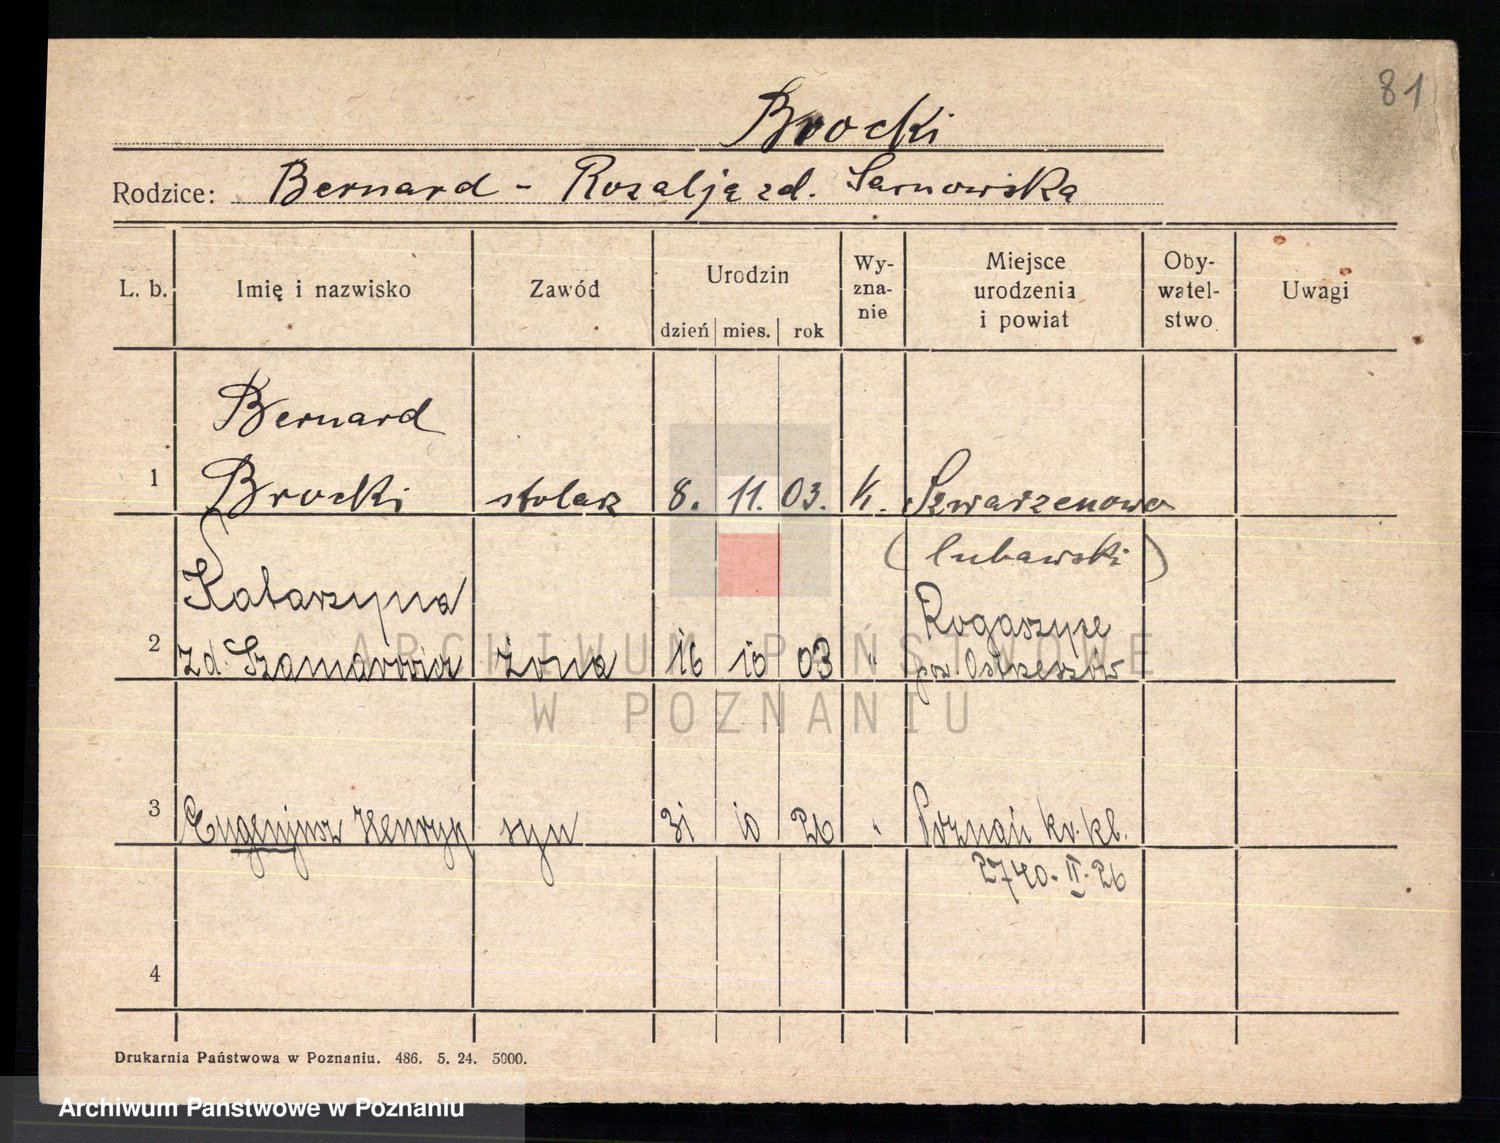 81
Brocki
Rodzice: Bernard - Rozalja zd. Sarnowska
L. b. Imię i nazwisko Zawód Urodzin dzień mies. rok Wy-zna-nie Miejsce urodzenia i powiat Oby-watel-stwo Uwagi
Bernard
1 Brocki stolarz 8. 11. 03. k. Szwarzenowo
(lubawski)
Katarzyna Rogaszyce
2 zd. żona 16 10 03 " pow. Ostrzeszów
3 Eugenjusz Henryk syn 31 10 26 " Poznań kr. kb.
2740. II. 26
4
Drukarnia Państwowa w Poznaniu. 486. 5. 24. 5000.
ARCHIWUM PAŃSTWOWE
W POZNANIU
Archiwum Państwowe w Poznaniu